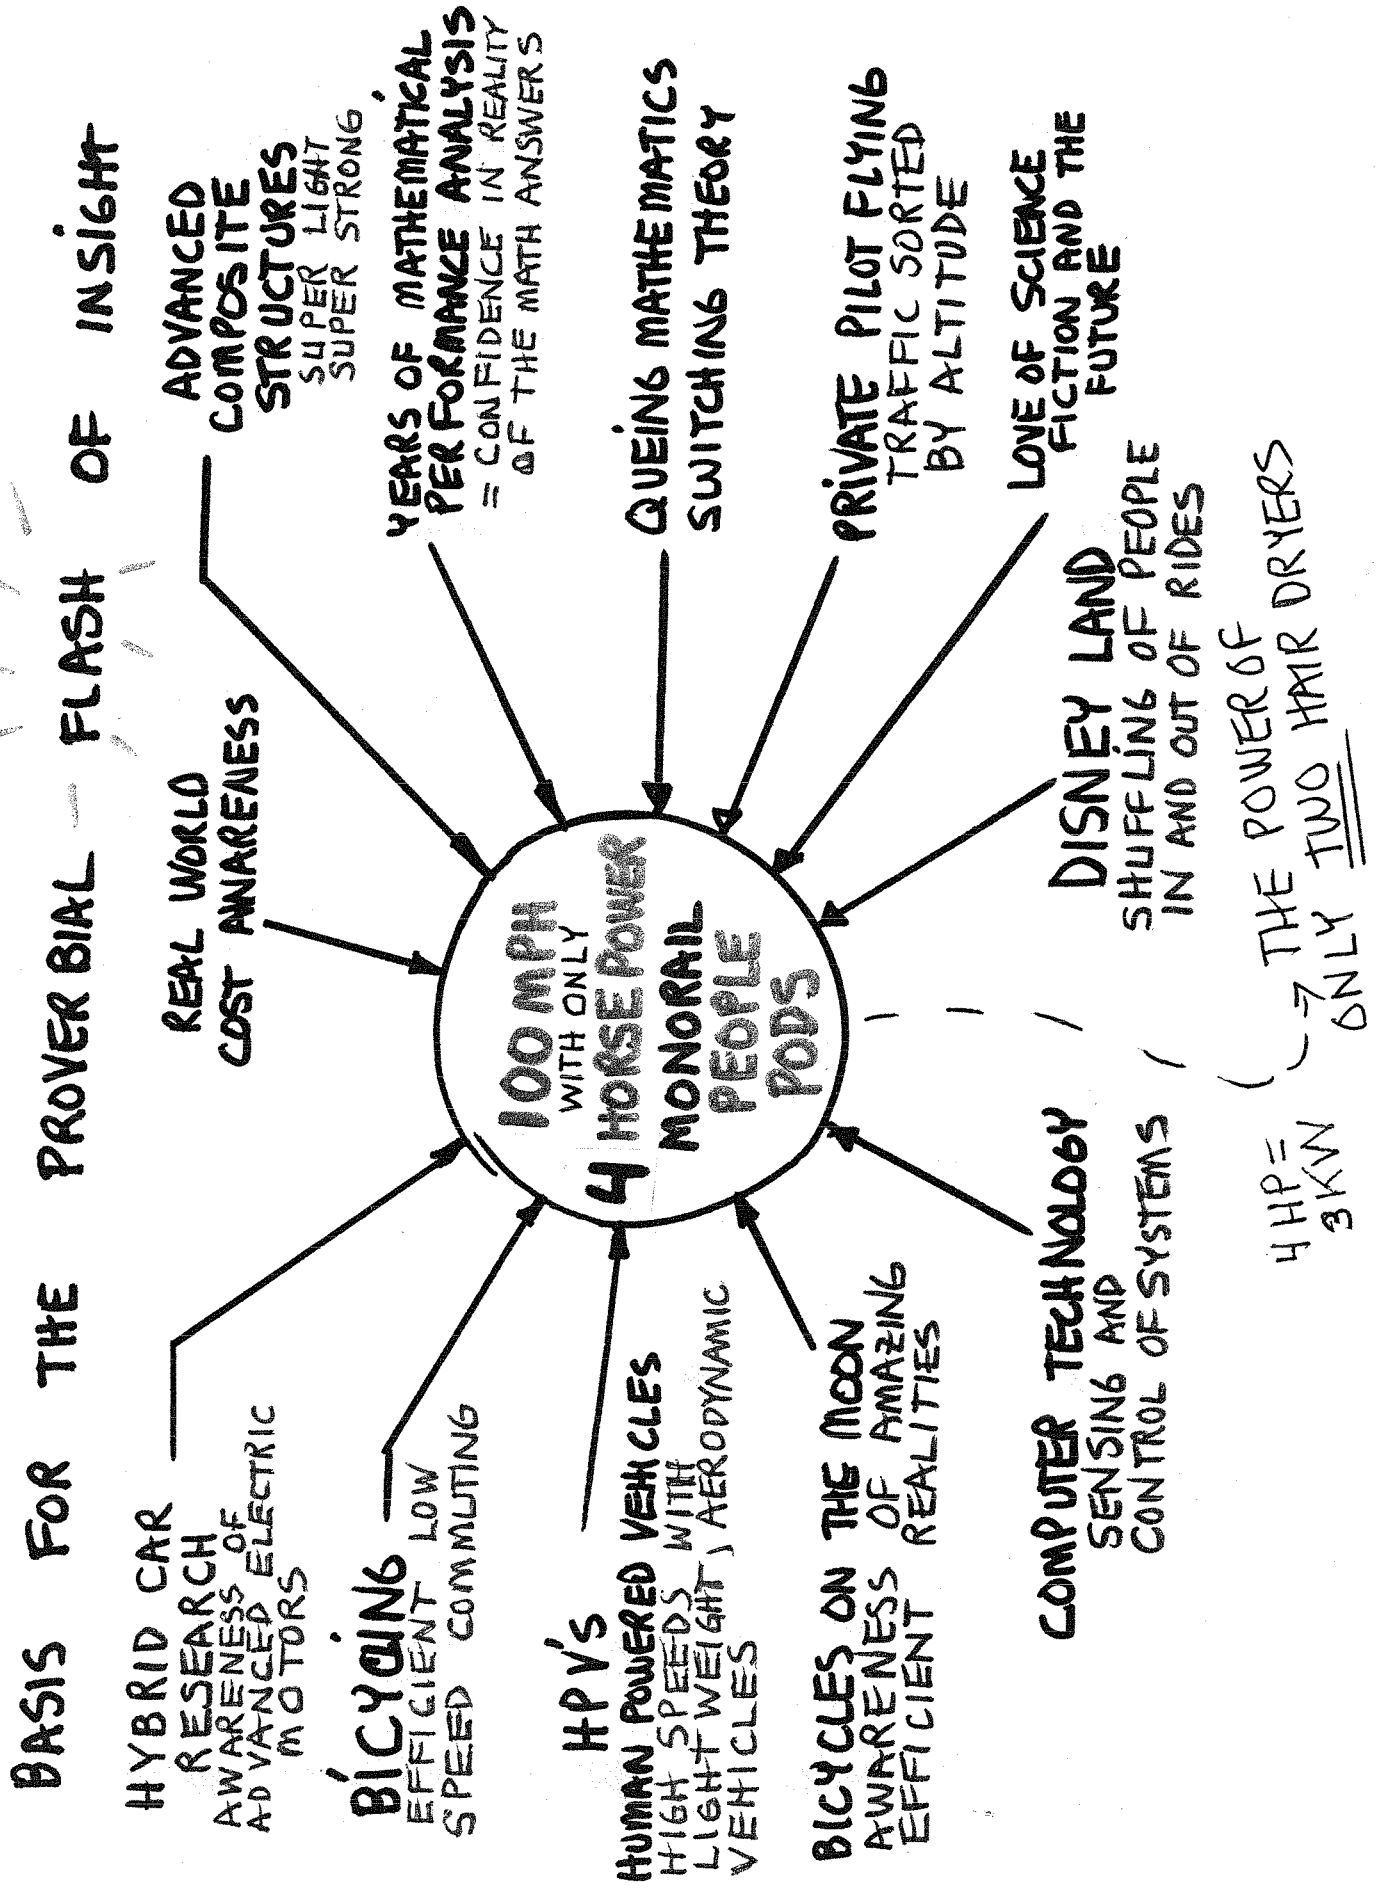 BASIS FOR THE PROVERBIAL FLASH OF INSIGHT
HYBRID CAR
RESEARCH
AWARENESS OF
ADVANCED ELECTRIC
MOTORS
BICYCLING
EFFICIENT LOW
SPEED COMMUTING
HPV's
HUMAN POWERED VEHICLES
HIGH SPEEDS WITH
LIGHT WEIGHT, AERODYNAMIC
VEHICLES
BICYCLES ON THE MOON
AWARENESS OF AMAZING
EFFICIENT REALITIES
COMPUTER TECHNOLOGY
SENSING AND
CONTROL OF SYSTEMS
REAL WORLD
COST AWARENESS
100 MPH
WITH ONLY
4 HORSE POWER
MONORAIL
PEOPLE
PODS
4 HP =
3 KW
THE POWER OF
ONLY TWO HAIR DRYERS
ADVANCED
COMPOSITE
STRUCTURES
SUPER LIGHT
SUPER STRONG
YEARS OF MATHEMATICAL
PERFORMANCE ANALYSIS
= CONFIDENCE IN REALITY
OF THE MATH ANSWERS
QUEING MATHEMATICS
SWITCHING THEORY
PRIVATE PILOT FLYING
TRAFFIC SORTED
BY ALTITUDE
LOVE OF SCIENCE
FICTION AND THE
FUTURE
DISNEY LAND
SHUFFLING OF PEOPLE
IN AND OUT OF RIDES